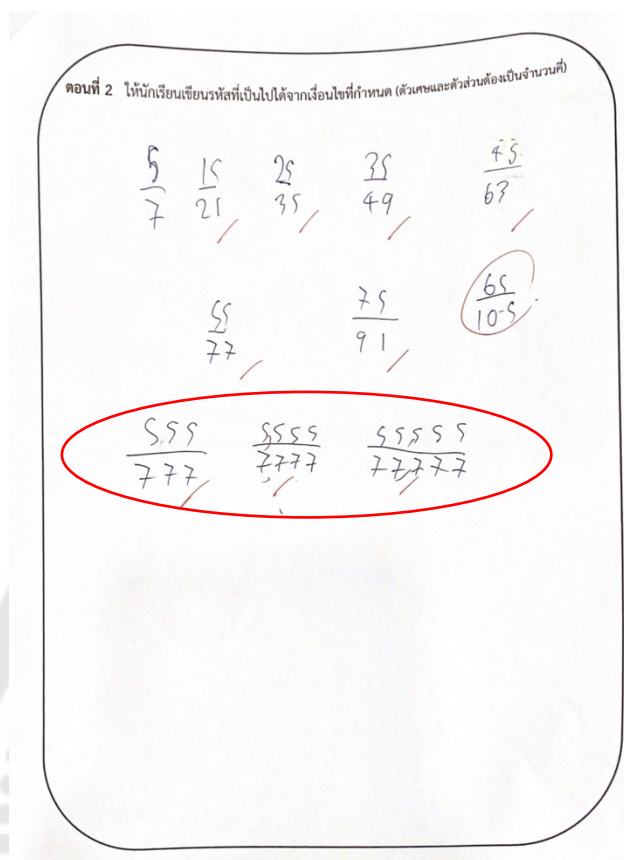 ตอนที่ 2 ให้นักเรียนเขียนรหัสที่เป็นไปได้จากเงื่อนไขที่กำหนด (ตัวเศษและตัวส่วนต้องเป็นจำนวนคี่)
5/7 15/21 25/35 35/49 45/63
55/77 75/91 65/105
555/777 5555/7777 55555/77777